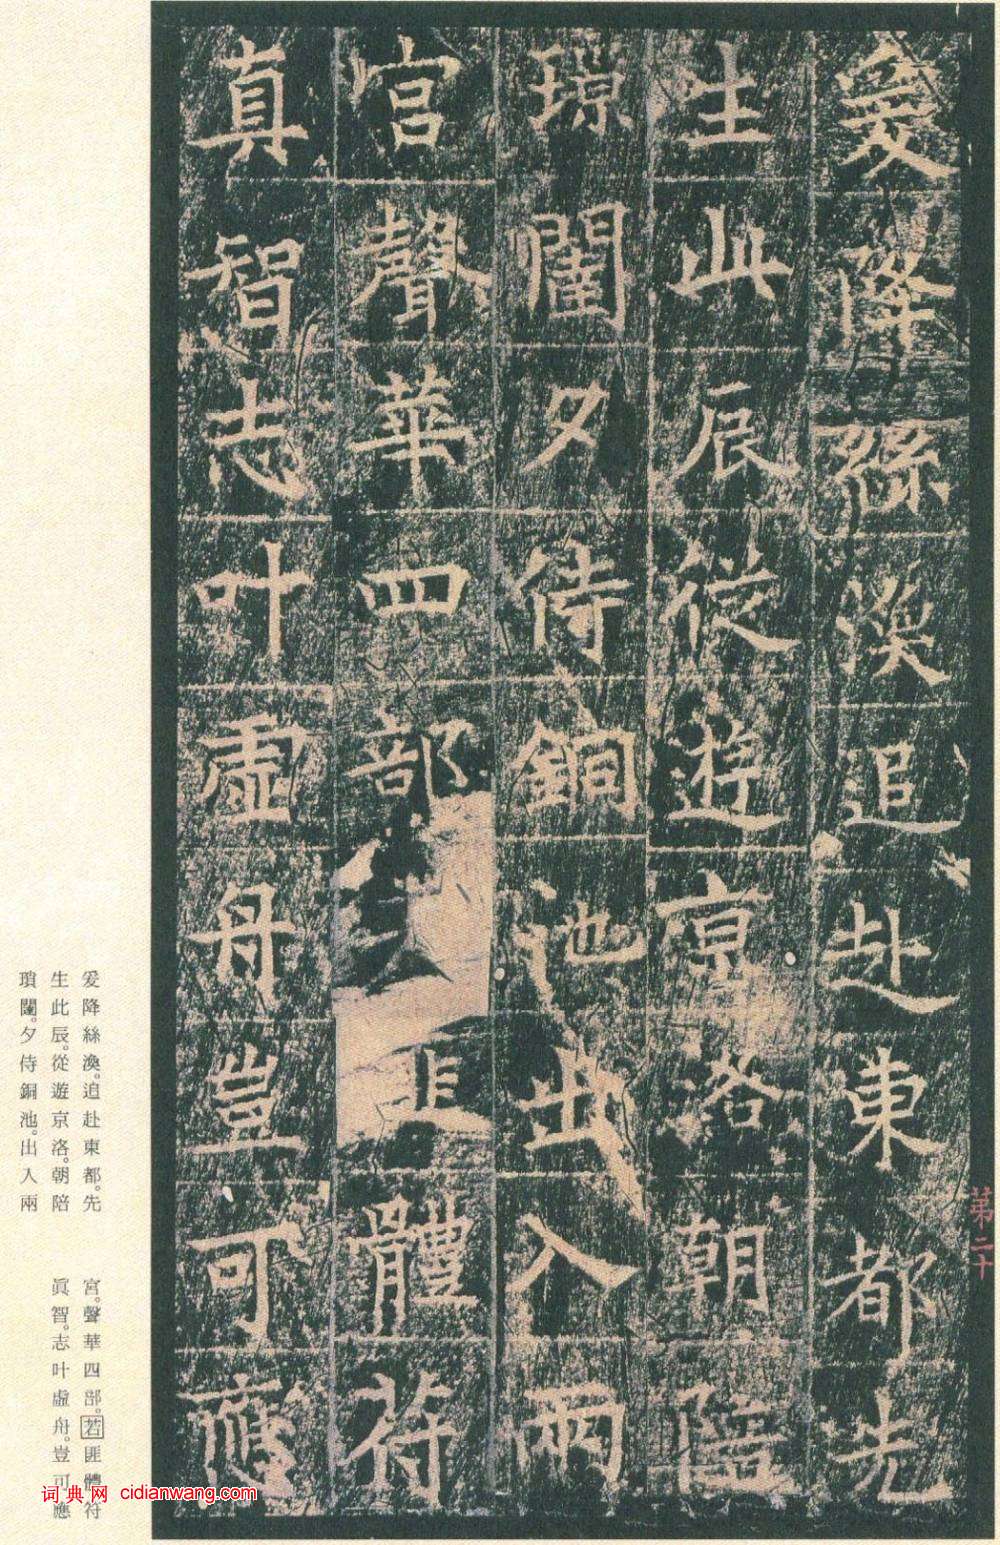 爰降絲渙追赴東都先
生此辰從遊京洛朝陪
瑣闈夕侍銅池出入兩
宮聲華四部匪體符
真智志叶虛舟豈可應
第二十
爰降絲渙。追赴東都。先
生此辰。從遊京洛。朝陪
瑣闈。夕侍銅池。出入兩
宮。聲華四部。若匪體符
眞智。志叶虛舟。豈可應
词典网 cidianwang.com